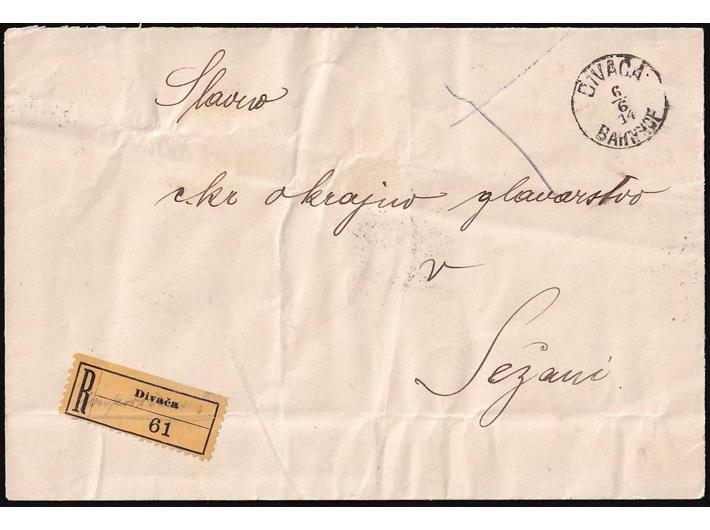 Slavno
DIVAČA
6/6
14
c.kr okrajno glavarstvo
v
Sežani.
R
Divača
61